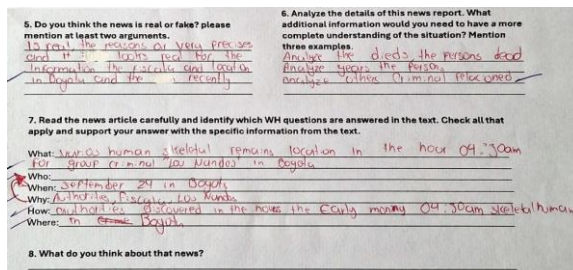 5. Do you think the news is real or fake? please
mention at least two arguments.
Is real, the reasons ar very precises
and it looks real for the
Information the fiscalia and location
in Bogota and the recently
6. Analyze the details of this news report. What
additional information would you need to have a more
complete understanding of the situation? Mention
three examples.
Analyze the dieds, the persons dead
Analyze years the person,
analyze others Criminal relacioned
7. Read the news article carefully and identify which WH questions are answered in the text. Check all that
apply and support your answer with the specific information from the text.
What: human remains location in the hour 04:30am
for group criminal "Los Ñandos" in Bogota
Who:
When: September 24 in Bogota
Why: Authorities, fiscalia, Los Ñandos
How: authorities discovered in the the early 04:30am skeletal human
Where: in Bogota
8. What do you think about that news?